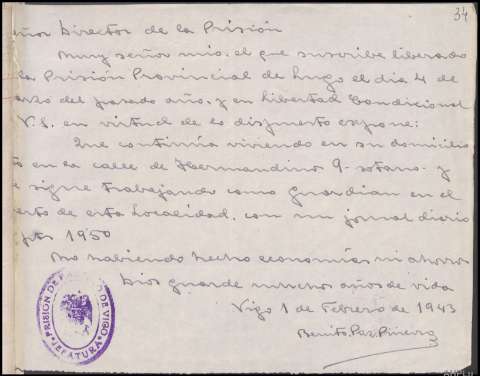 34
eñor Director de la Prisión
Muy señor mio: el que suscribe liberado
la Prisión Provincial de Lugo el dia 4 de
arzo del pasado año, y en libertad Condicional
V.S. en virtud de lo dispuesto expone:
Que continúa viviendo en su domicilio
to en la calle de Hermandino 9- sotano- y
e sigue trabajando como guardian en el
erto de esta Localidad, con un jornal diario
ptas 1950
No habiendo hecho economias ni ahorros
Dios guarde muchos años de vida
Vigo 1 de Febrero de 1943
Benito Paz
PRISION DE PARTIDO DE VIGO
JEFATURA